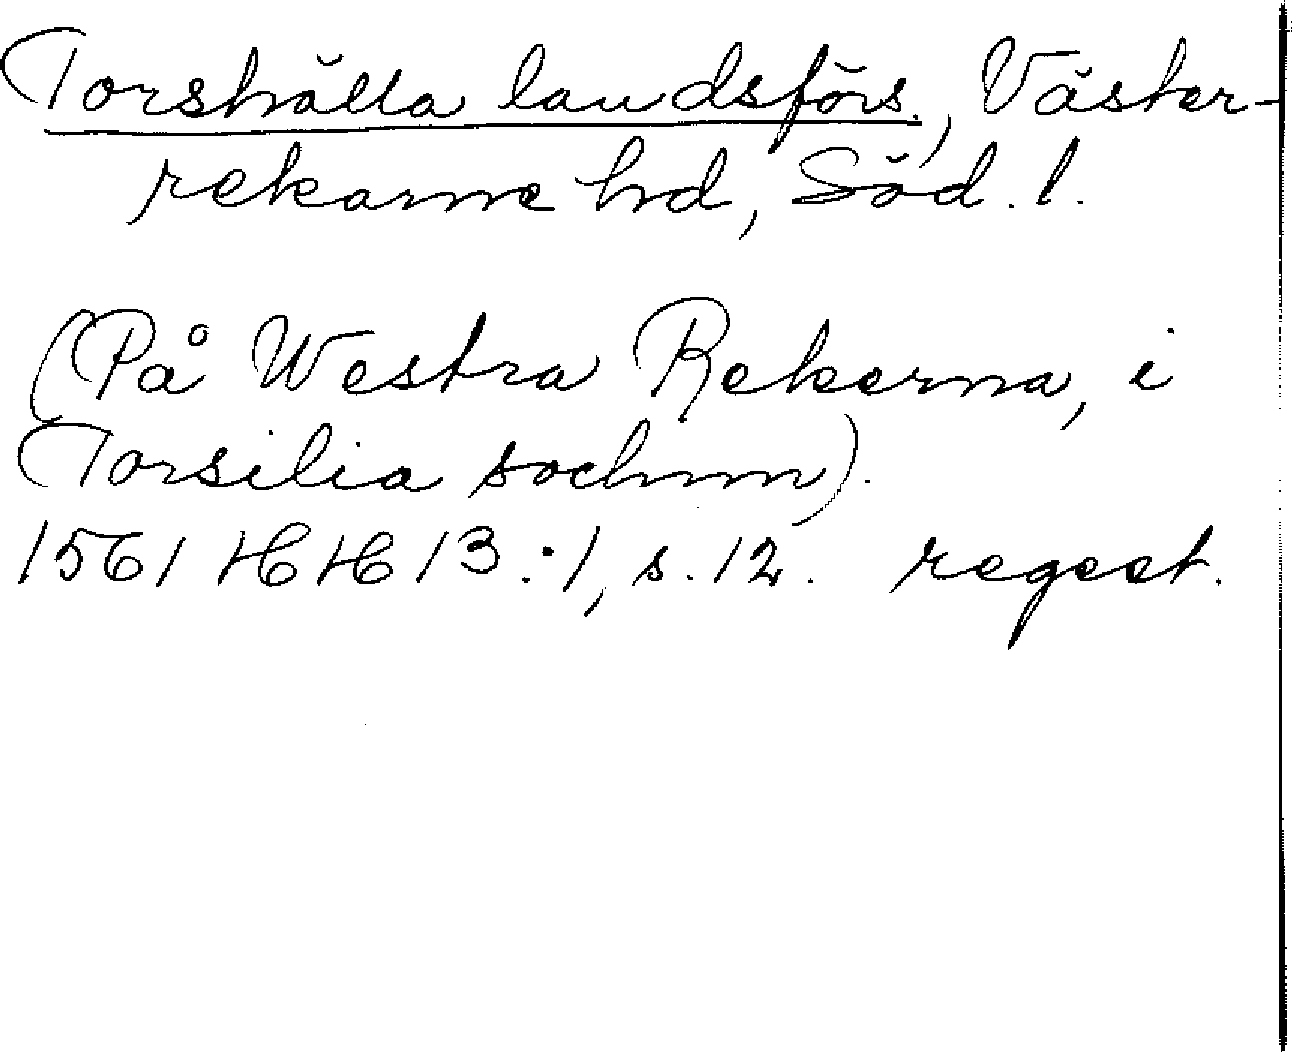 Torshälla landsförs., Väster-
rekarne hd, Söd. l.
(På Westra Rekerna, i
Torsilia sochnn).
1561 HH 13:1, s. 12. regest.